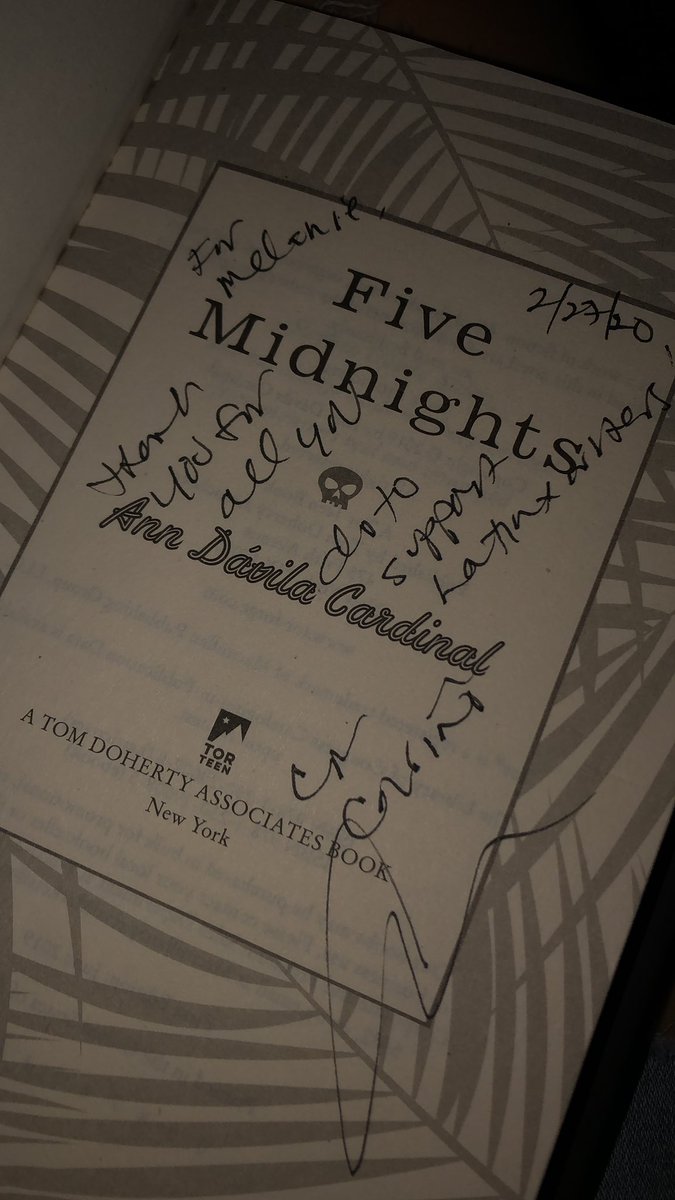 For
Melanie,
2/27/20
Five
Midnights
Thank
you for
all you
do to
support
Latinx writers
Ann Dávila Cardinal
con
cariño
TOR
TEEN
A TOM DOHERTY ASSOCIATES BOOK
New York